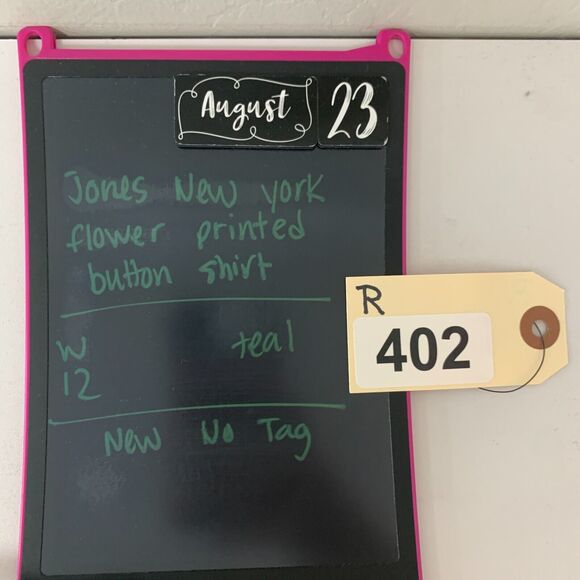 August 23
Jones New york
flower printed
button shirt
R
402
W teal
12
New No Tag